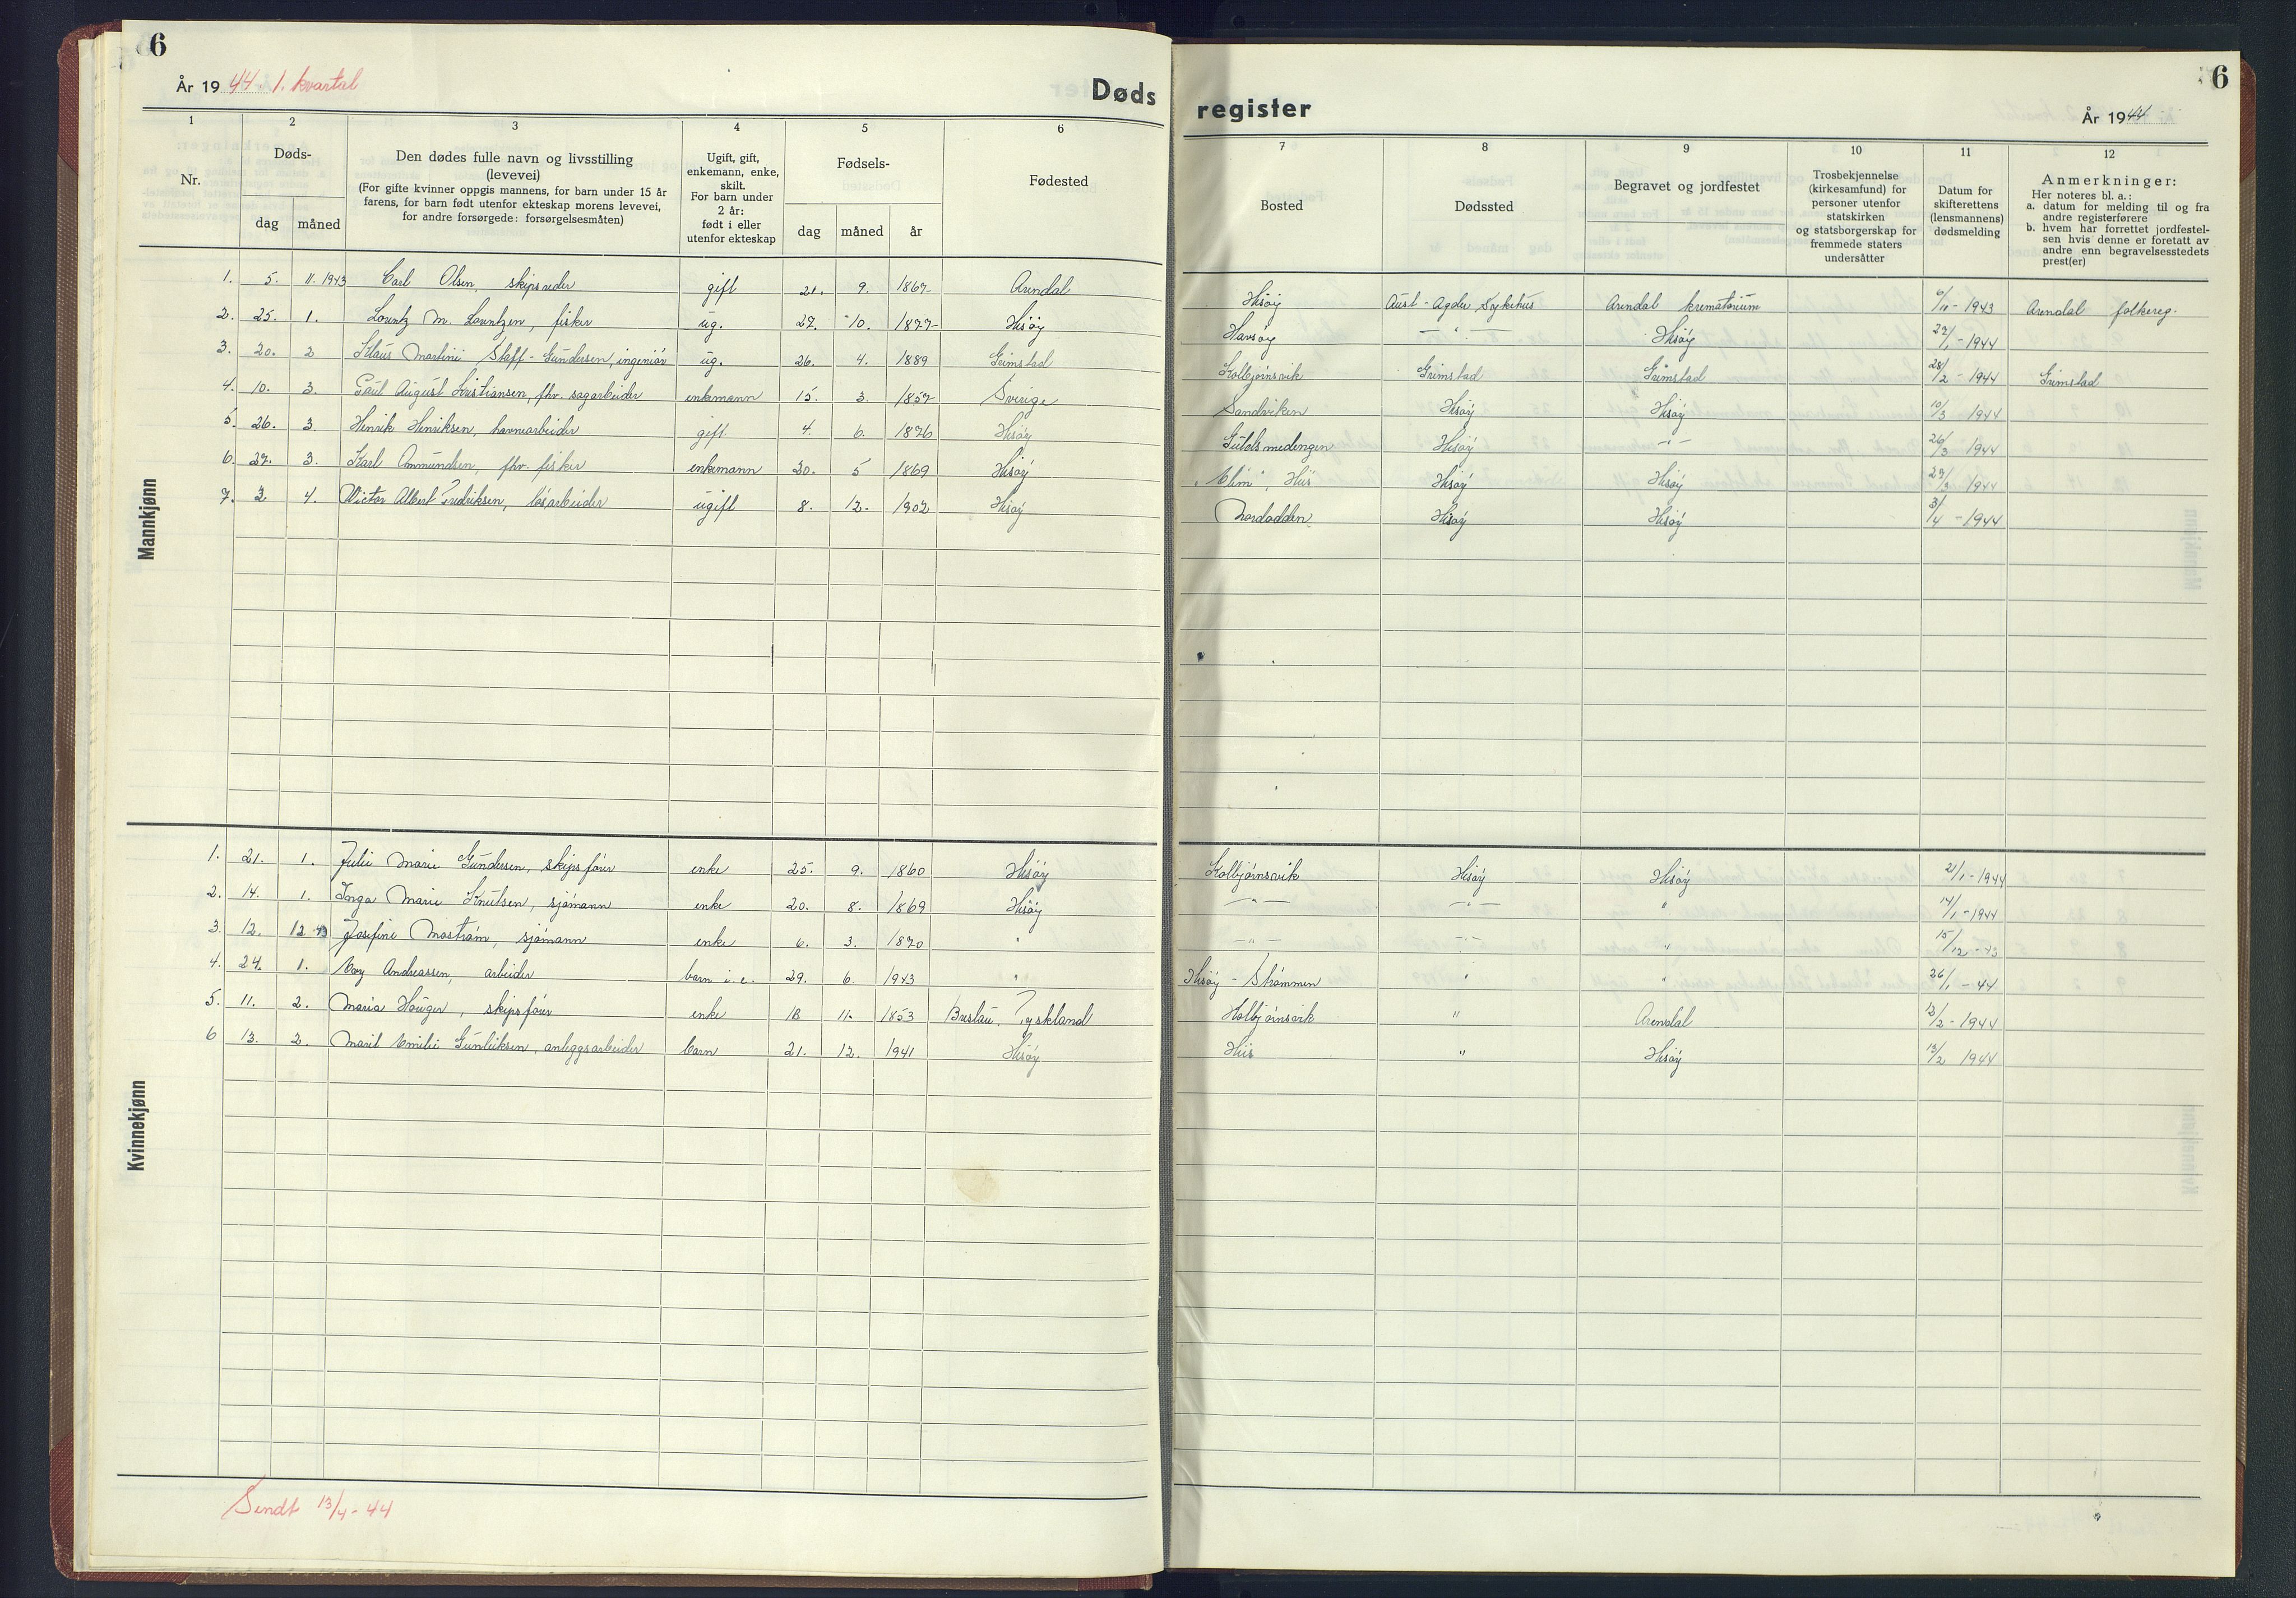 6
År 1944. 1. kvartal
Døds
1 2 3 4 5 6
Nr.
Døds-
dag måned
Den dødes fulle navn og livsstilling
(levevei)
(For gifte kvinner oppgis mannens, for barn under 15 år
farens, for barn født utenfor ekteskap morens levevei,
for andre forsørgede: forsørgelsesmåten)
Ugift, gift,
enkemann, enke,
skilt.
For barn under
2 år:
født i eller
utenfor ekteskap
Fødsels-
dag måned år
Fødested
Mannkjønn
1. 5. 11. 1943 Carl Olsen, skipsreder gift 21. 9. 1867 Arendal
2. 25. 1. Lorentz M. Lorentzen, fisker ug. 27. 10. 1877 Hisöy
3. 20. 2 Klaus Martini Staff-Gundersen, ingeniör ug. 26. 4. 1889 Grimstad
4. 10. 3. Paul August Kristiansen, fhv. sagarbeider enkemann 15. 3. 1857 Sverige
5. 26. 3. Henrik Henriksen, havnearbeider gift 4. 6. 1876 Hisöy
6. 27. 3. Karl Ommundsen, fhv. fisker enkemann 30. 5 1869 Hisöy
7. 3 4. Victor Albert Fredriksen, lösarbeider ugift 8. 12. 1902 Hisöy
Kvinnekjønn
1. 21. 1. Julie Marie Gundersen, skipsförer enke 25. 9. 1860 Hisöy
2. 14. 1. Inga Marie Knutsen, sjömann enke 20. 8. 1869 Hisöy
3. 12. 12 43 Josefine Moström, sjömann enke 6. 3. 1870 "
4. 24. 1. Andreassen, arbeider barn i.e. 29. 6. 1943 "
5. 11. 2. Maria Hauger, skipsförer enke 18 11. 1853 Breslau, Tyskland
6 13. 2. Marit Emilie Gunleiksen, anleggsarbeider barn 21. 12. 1941 Hisöy
Sendt 13/4-44
6
register
År 1944
7 8 9 10 11 12
Bosted
Dødssted
Begravet og jordfestet
Trosbekjennelse
(kirkesamfund) for
personer utenfor
statskirken
og statsborgerskap for
fremmede staters
undersåtter
Datum for
skifterettens
(lensmannens)
dødsmelding
Anmerkninger:
Her noteres bl. a.:
a. datum for melding til og fra
andre registerførere
b. hvem har forrettet jordfestel-
sen hvis denne er foretatt av
andre enn begravelsesstedets
prest(er)
Hisöy Aust-Agder Sykehus Arendal krematorium 6/11-1943 Arendal folkereg.
Havsöy —"— Hisöy 27/1-1944
Kolbjörnsvik Grimstad Grimstad 28/2-1944 Grimstad
Sandviken Hisöy Hisöy 10/3 1944
Gullsmedengen Hisöy —"— 26/3 1944
"Elim", His Hisöy Hisöy 27/3-1944
Nordodden Hisöy Hisöy 3/4-1944
Kolbjörnsvik Hisöy Hisöy 21/1-1944
—"— —"— " 14/1-1944
—"— —"— " 15/12-43
Hisöy - Strömmen " " 26/1-44
Kolbjörnsvik " Arendal 12/2-1944
His " Hisöy 13/2 1944